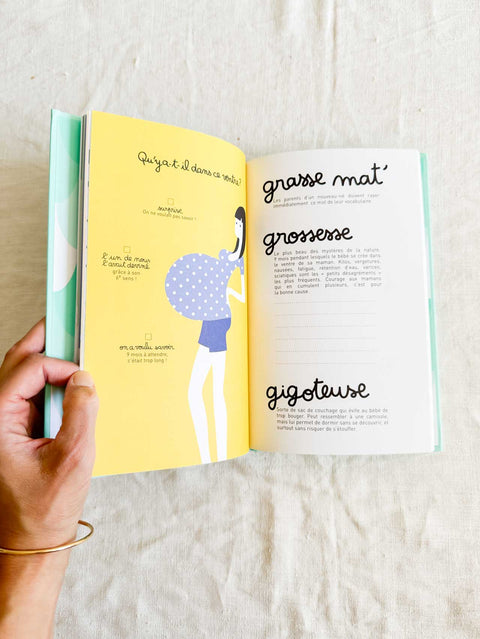 Qu'y a-t-il dans ce ventre?
surprise
On ne voulait pas savoir !
l'un de nous
l'avait deviné
grâce à son
6e sens !
on a voulu savoir
9 mois à attendre,
c'était trop long !
grasse mat'
Les parents d'un nouveau-né doivent rayer
immédiatement ce mot de leur vocabulaire.
grossesse
Le plus beau des mystères de la nature.
9 mois pendant lesquels le bébé se crée dans
le ventre de sa maman. Kilos, vergetures,
nausées, fatigue, rétention d'eau, varices,
sciatiques sont les « petits désagréments »
les plus fréquents. Courage aux mamans
qui en cumulent plusieurs, c'est pour
la bonne cause.
gigoteuse
Sorte de sac de couchage qui évite au bébé de
trop bouger. Peut ressembler à une camisole,
mais lui permet de dormir sans se découvrir et
surtout sans risquer de s'étouffer.